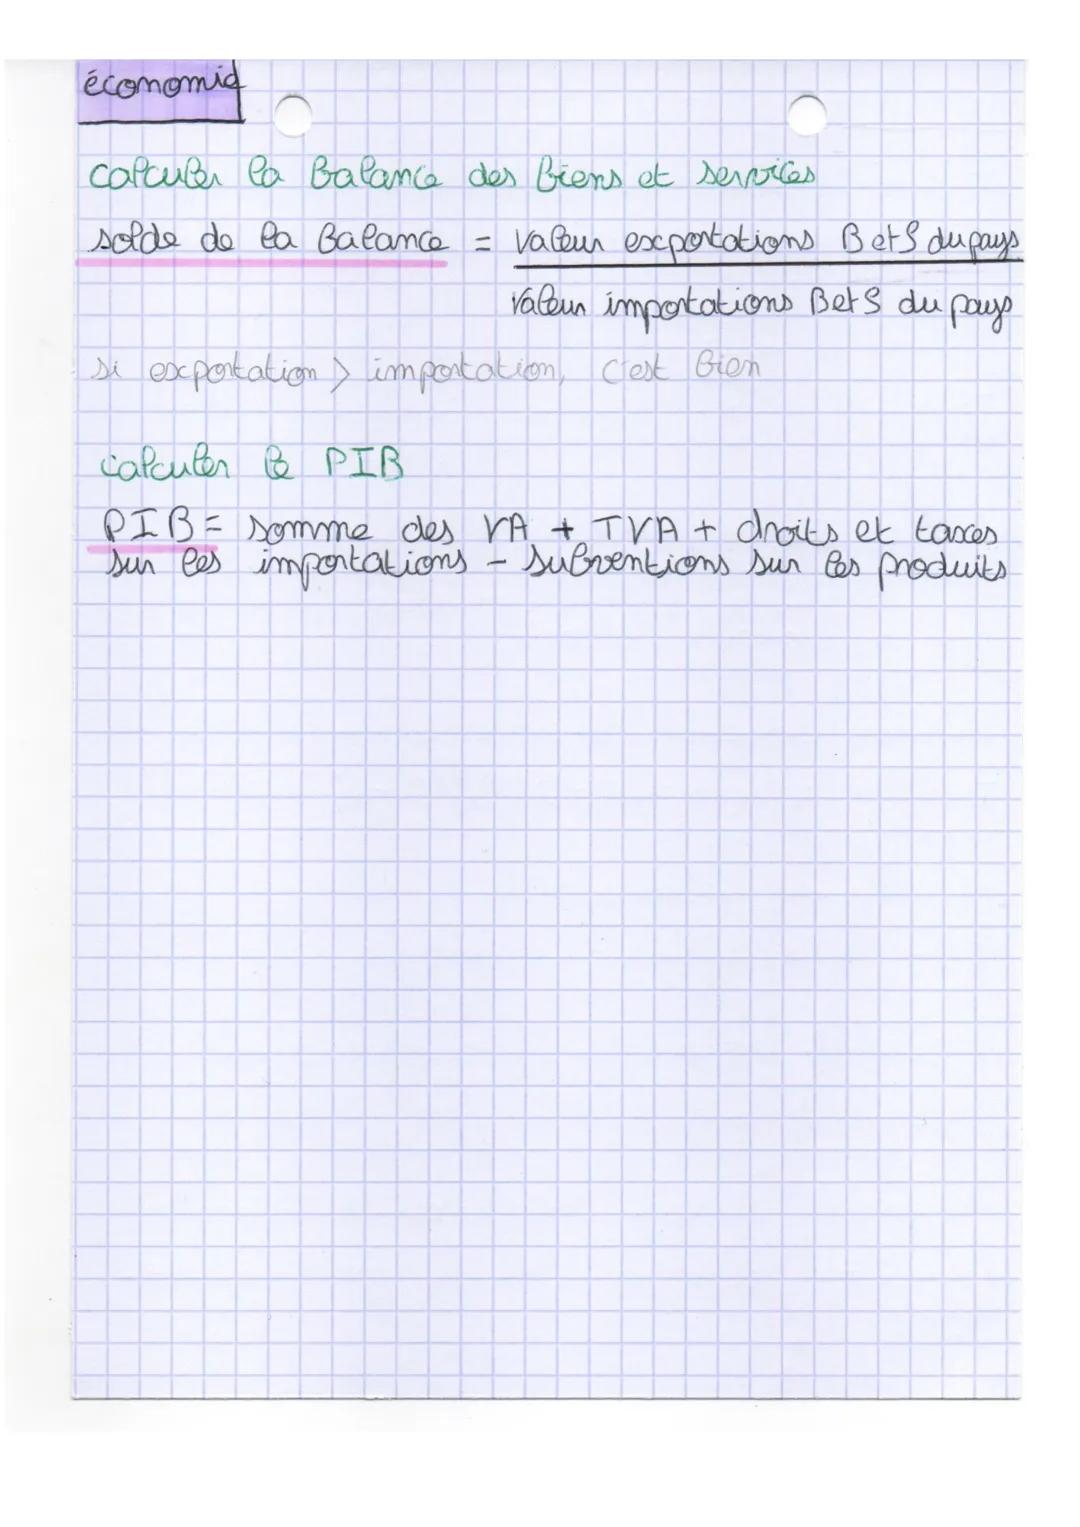 économie
calculer la Balance des biens et services
solde de la Balance = valeur exportations B et S du pays
valeur importations B et S du pays
si exportation > importation, c'est bien
calculer le PIB
PIB = somme des VA + TVA + droits et taxes
sur les importations - subventions sur les produits